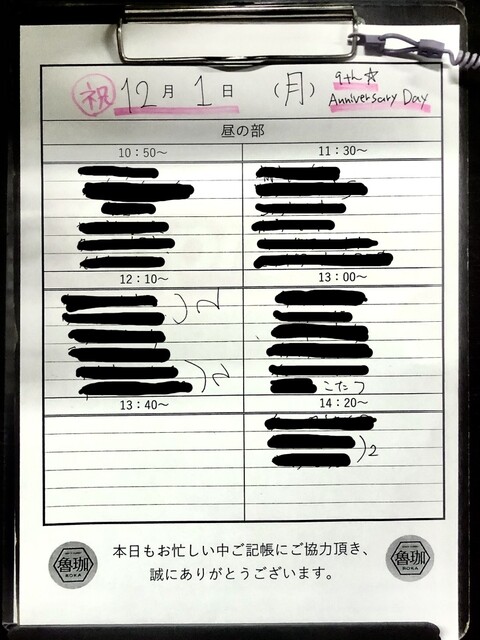 祝 12月 1日 (月) 9th☆
Anniversary Day
昼の部
10:50～ 11:30～
12:10～ 13:00～
2
2
こたつ
13:40～ 14:20～
2
本日もお忙しい中ご記帳にご協力頂き、
誠にありがとうございます。
魯珈
ROKA
魯珈
ROKA